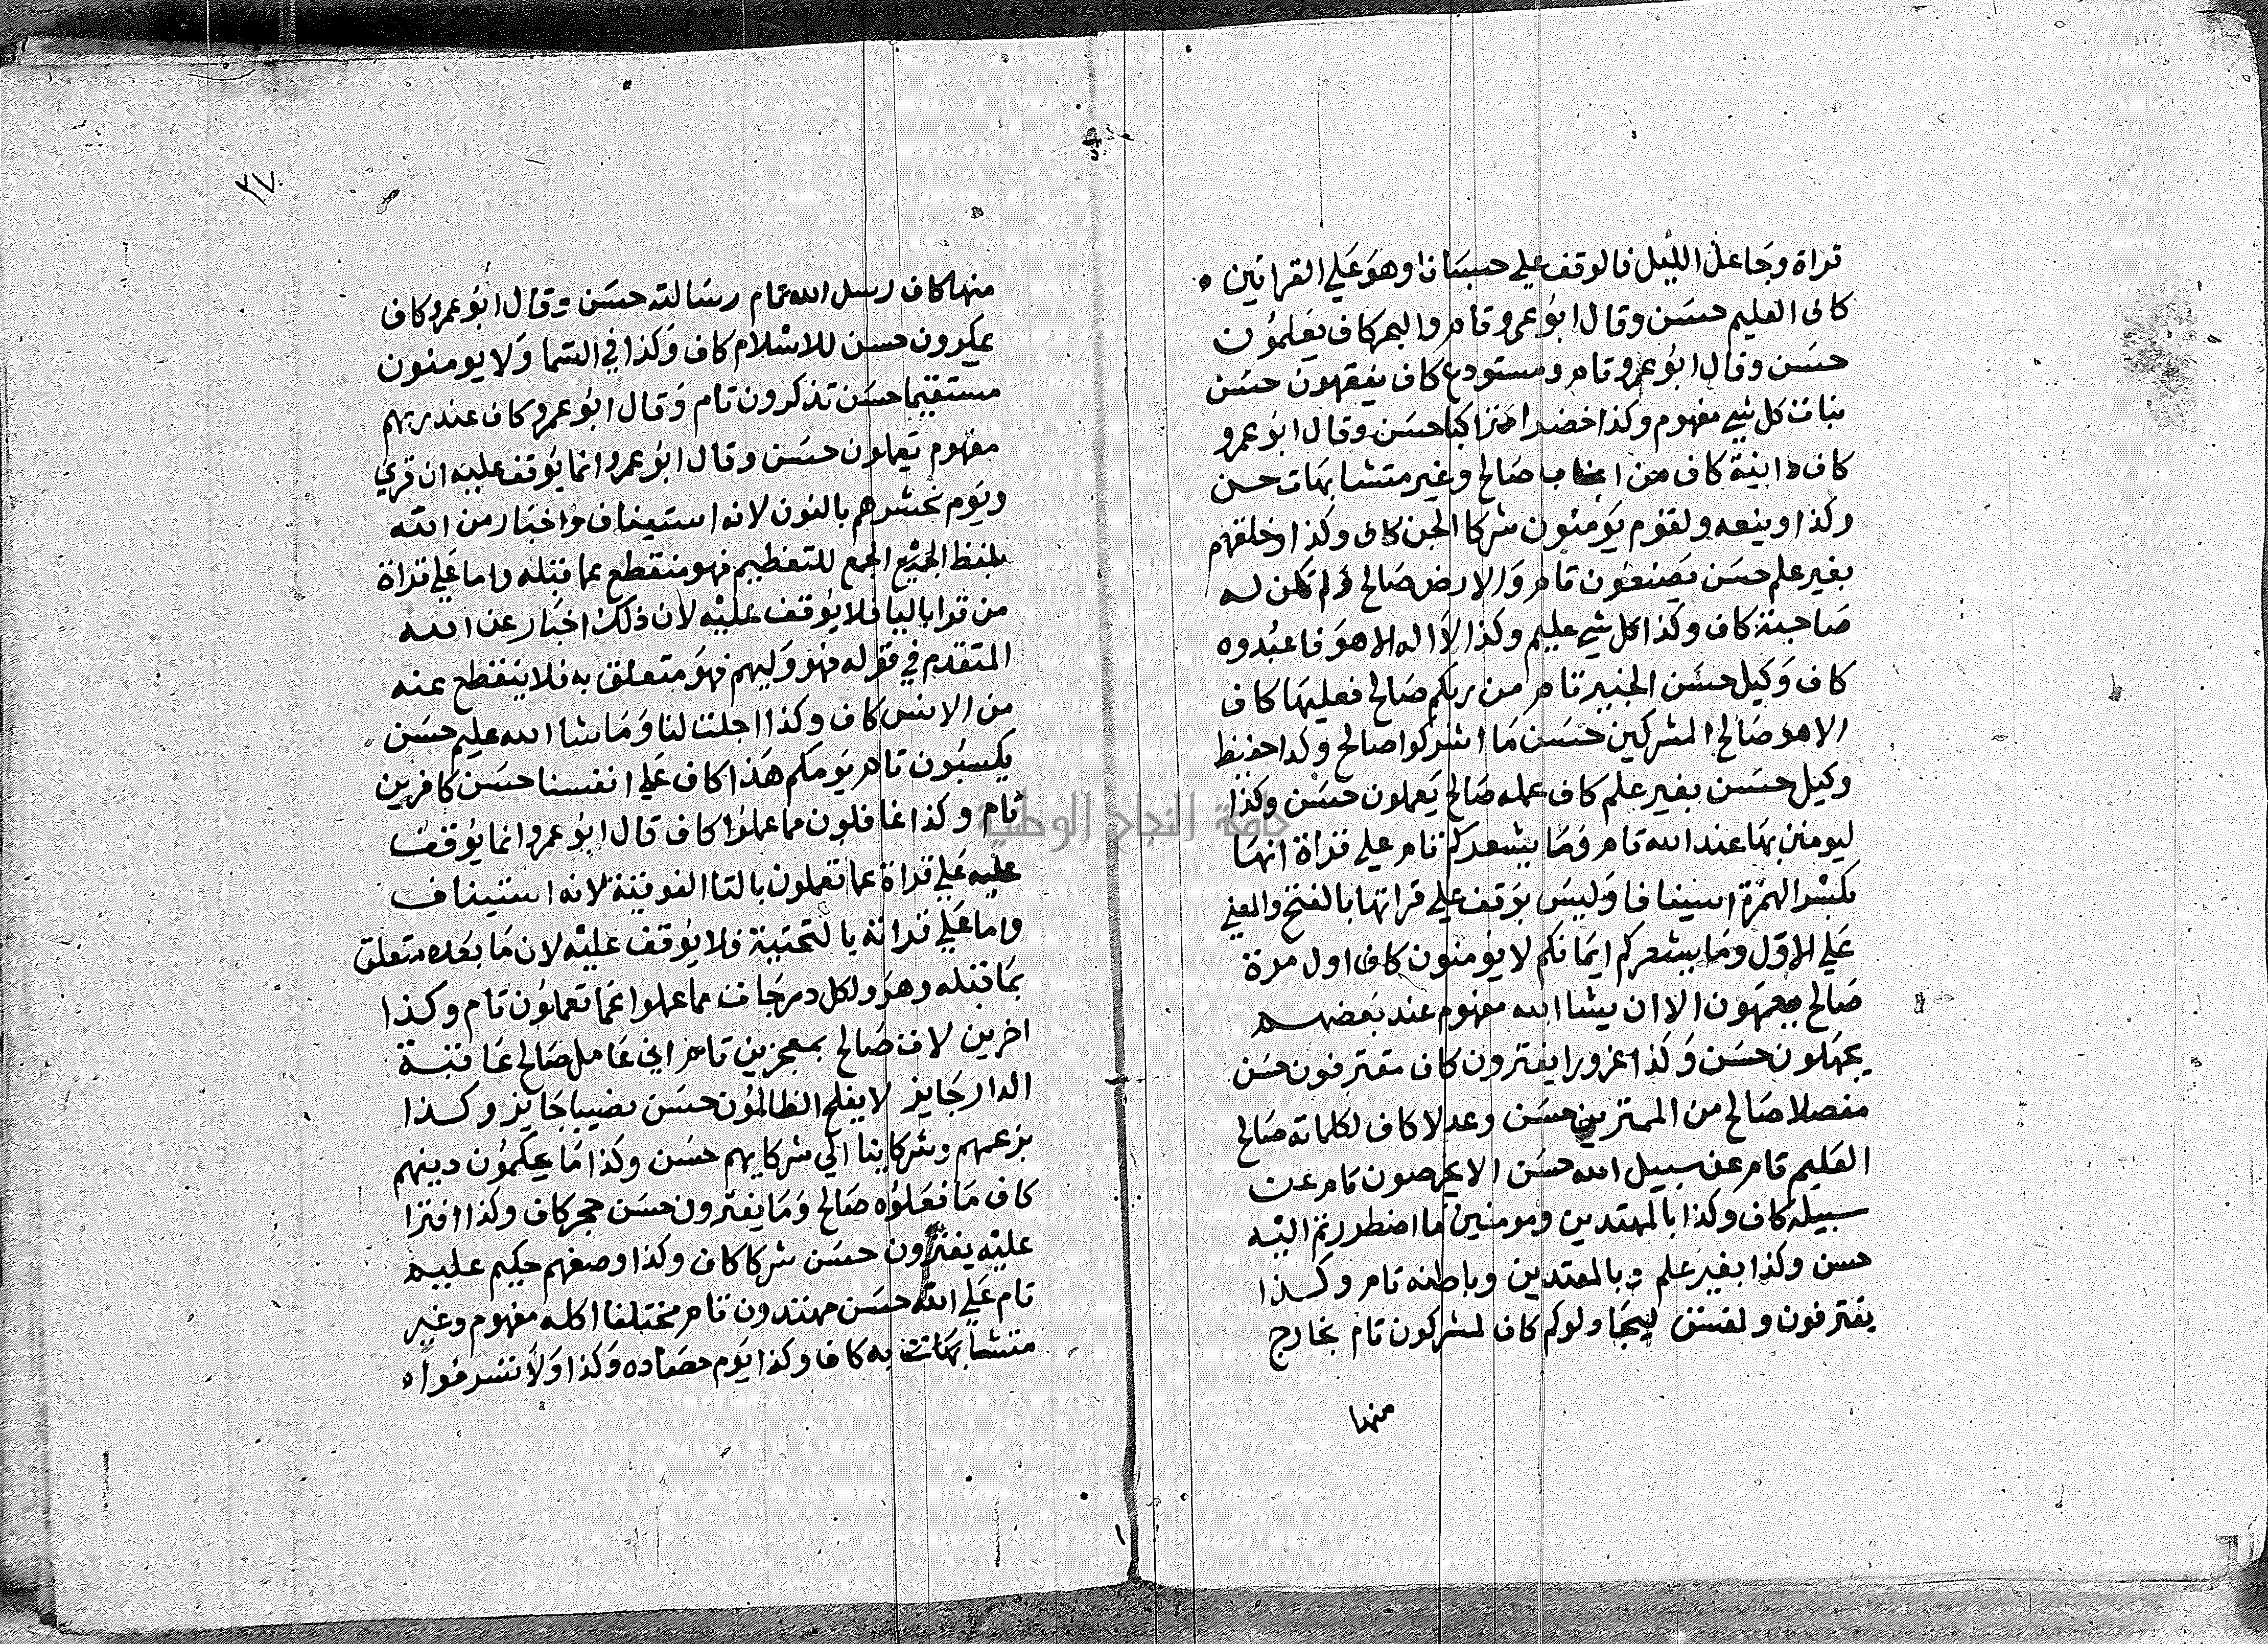 قراة وجاعل الليل فالوقف علي حسبانا وهو علي القراتين
كاف العليم حسن وقال ابو عمرو تام والبحر كاف يعلمون
حسن وقال ابو عمرو تام ومستودع كاف يفقهون حسن
نبات كل شي مفهوم وكذا خضرا متراكبا حسن وقال ابو عمرو
كاف دانية كاف من اعناب صالح وغير متشابهات حسن
وكذا وينعه ولقوم يومنون شركا الجن كاف وكذا وخلقهم
بغير علم حسن يصنعون تام والارض صالح ولم تكن له
صاحبة كاف وكذا كل شي عليم وكذا لا اله الا هو فاعبدوه
كاف وكيل حسن الخبير تام من ربكم صالح فعليها كاف
الا هو صالح المشركين حسن ما اشركوا صالح وكذا حفيظ
وكيل حسن بغير علم كاف عمله صالح يعملون حسن وكذا
ليومنن بها عند الله تام وما يشعركم تام علي قراة انها
بكسر الهمزة استينافا وليس بوقف علي قراتها بالفتح والمعني
علي الاول وما يشعركم ايمانكم لا يومنون كاف اول مرة
صالح يعمهون الا ان يشا الله مفهوم عند بعضهم
يجهلون حسن وكذا غرورا يفترون كاف مقترفون حسن
مفصلا صالح من الممترين حسن وعدلا كاف لكلماته صالح
العليم تام عن سبيل الله حسن الا يخرصون تام عن
سبيله كاف وكذا بالمهتدين ومومنين ما اضطررتم اليه
حسن وكذا بغير علم وبالمعتدين وباطنه تام وكذا
يقترفون ولفسق ليجادلوكم كاف لمشركون تام بخارج
منها
٣٧
منها كاف رسل الله تمام رسالته حسن وقال ابو عمرو كاف
يمكرون حسن للاسلام كاف وكذا في السما ولا يومنون
مستقيما حسن تذكرون تام وقال ابو عمرو كاف عند ربهم
مفهوم يعملون حسن وقال ابو عمرو انما يوقف عليه ان قري
ويوم نحشرهم بالنون لانه استيناف واخبار من الله
بلفظ الجمع للتعظيم فهو منقطع عما قبله واما علي قراة
من قرا باليا فلا يوقف عليه لان ذلك اخبار عن الله
المتقدم في قوله فهو وليهم فهو متعلق به فلا ينقطع عنه
من الانس كاف وكذا اجلت لنا وما شا الله عليم حسن
يكسبون تام يومكم هذا كاف علي انفسنا حسن كافرين
تام وكذا غافلون مما عملوا كاف قال ابو عمرو انما يوقف
عليه علي قراة عما تعملون بالتا الفوقية لانه استيناف
واما علي قراته يا لتحتية فلا يوقف عليه لان ما بعده متعلق
بما قبله وهو ولكل درجات مما عملوا عما تعملون تام وكذا
اخرين لات صالح بمعجزين تام اني عامل صالح عاقبة
الدار جايز لا يفلح الظالمون حسن نصيبا جايز وكذا
بزعمهم وشركاينا الي شركايهم حسن وكذا ما يحكمون دينهم
كاف ما فعلوه صالح وما يفترون حسن حجر كاف وكذا افترا
عليه يفترون حسن شركا كاف وكذا وصفهم حكيم عليم
تام علي الله حسن مهتدون تام مختلفا اكله مفهوم وغير
متشابهات به كاف وكذا يوم حصاده وكذا ولا تسرفوا
جامعة النجاح الوطنية